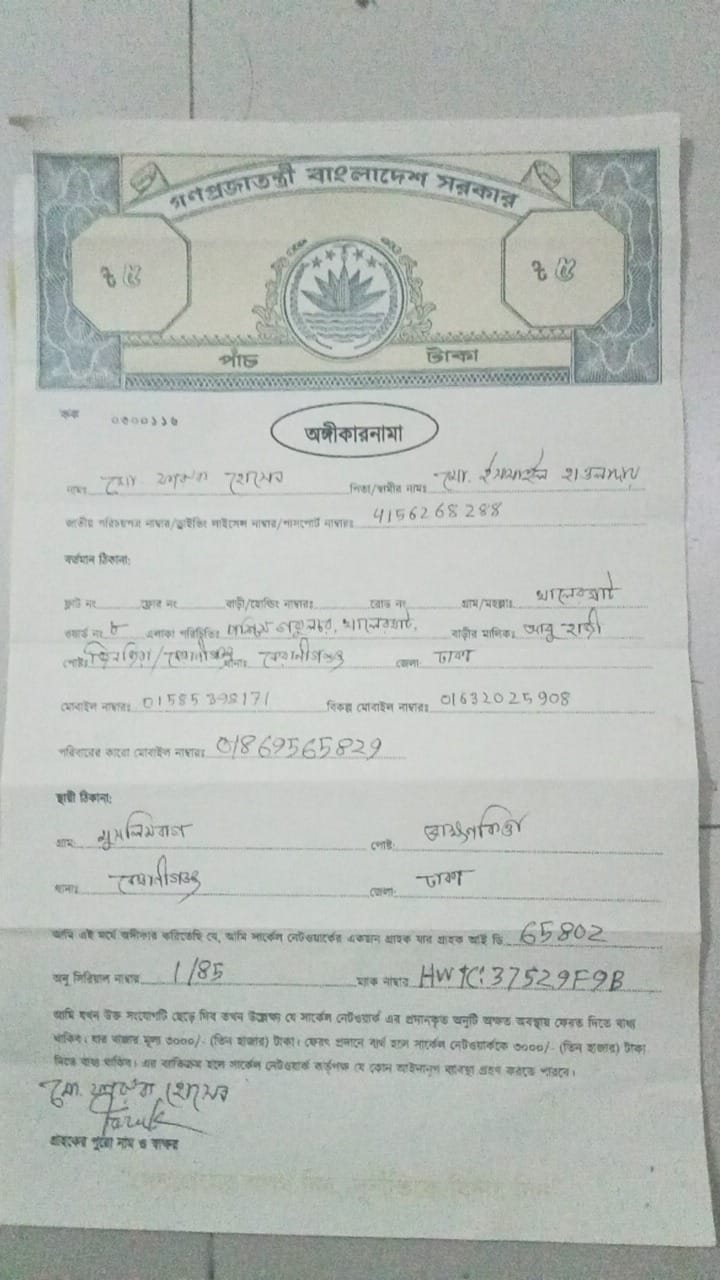 গণপ্রজাতন্ত্রী বাংলাদেশ সরকার
৳ ৫ ৳ ৫
পাঁচ টাকা
কক ০৩০০১১৬
অঙ্গীকারনামা
নামঃ মো. ফারুক হোসেন পিতা/স্বামীর নামঃ মো. ইসমাইল হাওলাদার
জাতীয় পরিচয়পত্র নাম্বার/ড্রাইভিং লাইসেন্স নাম্বার/পাসপোর্ট নাম্বারঃ 4156268288
বর্তমান ঠিকানা:
ফ্লাট নং ফ্লোর নং বাড়ী/হোল্ডিং নাম্বারঃ রোড নং গ্রাম/মহল্লাঃ খালেরঘাট
ওয়ার্ড নং ৮ এলাকা পরিচিতিঃ পশ্চিম খালেরঘাট, বাড়ীর মালিকঃ আবু হাজী
পোষ্টঃ জিনজিরা/কেরানীগঞ্জ থানাঃ কেরানীগঞ্জ জেলা: ঢাকা
মোবাইল নাম্বারঃ 01585398171 বিকল্প মোবাইল নাম্বারঃ 01632025908
পরিবারের কারো মোবাইল নাম্বারঃ 01869565829
স্থায়ী ঠিকানা:
গ্রাম: মুসলিমবাগ পোষ্ট:
থানাঃ কেরানীগঞ্জ জেলা: ঢাকা
আমি এই মর্মে অঙ্গীকার করিতেছি যে, আমি সার্কেল নেটওয়ার্কের একজন গ্রাহক যার গ্রাহক আই ডি 65802
অনু সিরিয়াল নাম্বার 1/85 ম্যাক নাম্বার HWTC: 37529F9B
আমি যখন উক্ত সংযোগটি ছেড়ে দিব তখন উল্লেখ্য যে সার্কেল নেটওয়ার্ক এর প্রদানকৃত অনুটি অক্ষত অবস্থায় ফেরত দিতে বাধ্য
থাকিব। যার বাজার মূল্য ৩০০০/- (তিন হাজার) টাকা। ফেরৎ প্রদানে ব্যর্থ হলে সার্কেল নেটওয়ার্ককে ৩০০০/- (তিন হাজার) টাকা
দিতে বাধ্য থাকিব। এর ব্যতিক্রম হলে সার্কেল নেটওয়ার্ক কর্তৃপক্ষ যে কোন আইনানুগ ব্যবস্থা গ্রহণ করতে পারবে।
মো. ফারুক হোসেন
Faruk
গ্রাহকের পুরো নাম ও স্বাক্ষর